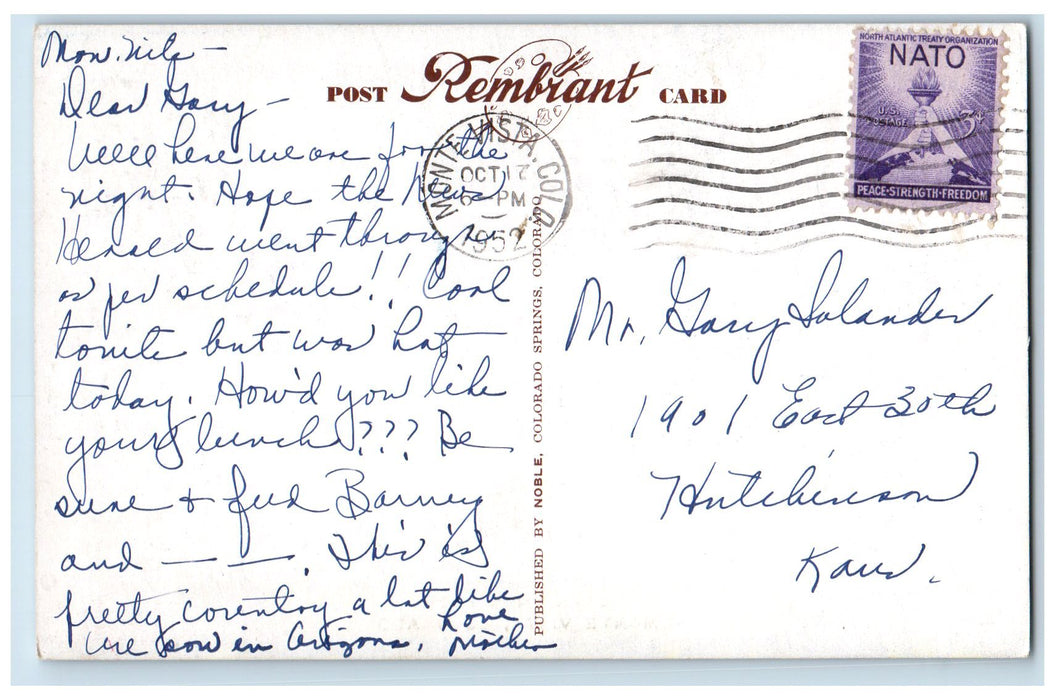 Mon. nite –
Dear Gary –
Well here we are for the
night. Hope the News
Herald went through
as per schedule!! Cool
tonite but was hot
today. How'd you like
your lunch??? Be
sure + feed Barney
and — —. This is
pretty country a lot like
we saw in Arizona. Love
Mother
POST Rembrant CARD
MONTE VISTA, COLO.
OCT 17
6 PM
1952
PUBLISHED BY NOBLE, COLORADO SPRINGS, COLORADO
NORTH ATLANTIC TREATY ORGANIZATION
NATO
U.S. POSTAGE
3¢
PEACE·STRENGTH·FREEDOM
Mr. Gary Solander
1901 East 30th
Hutchinson
Kans.